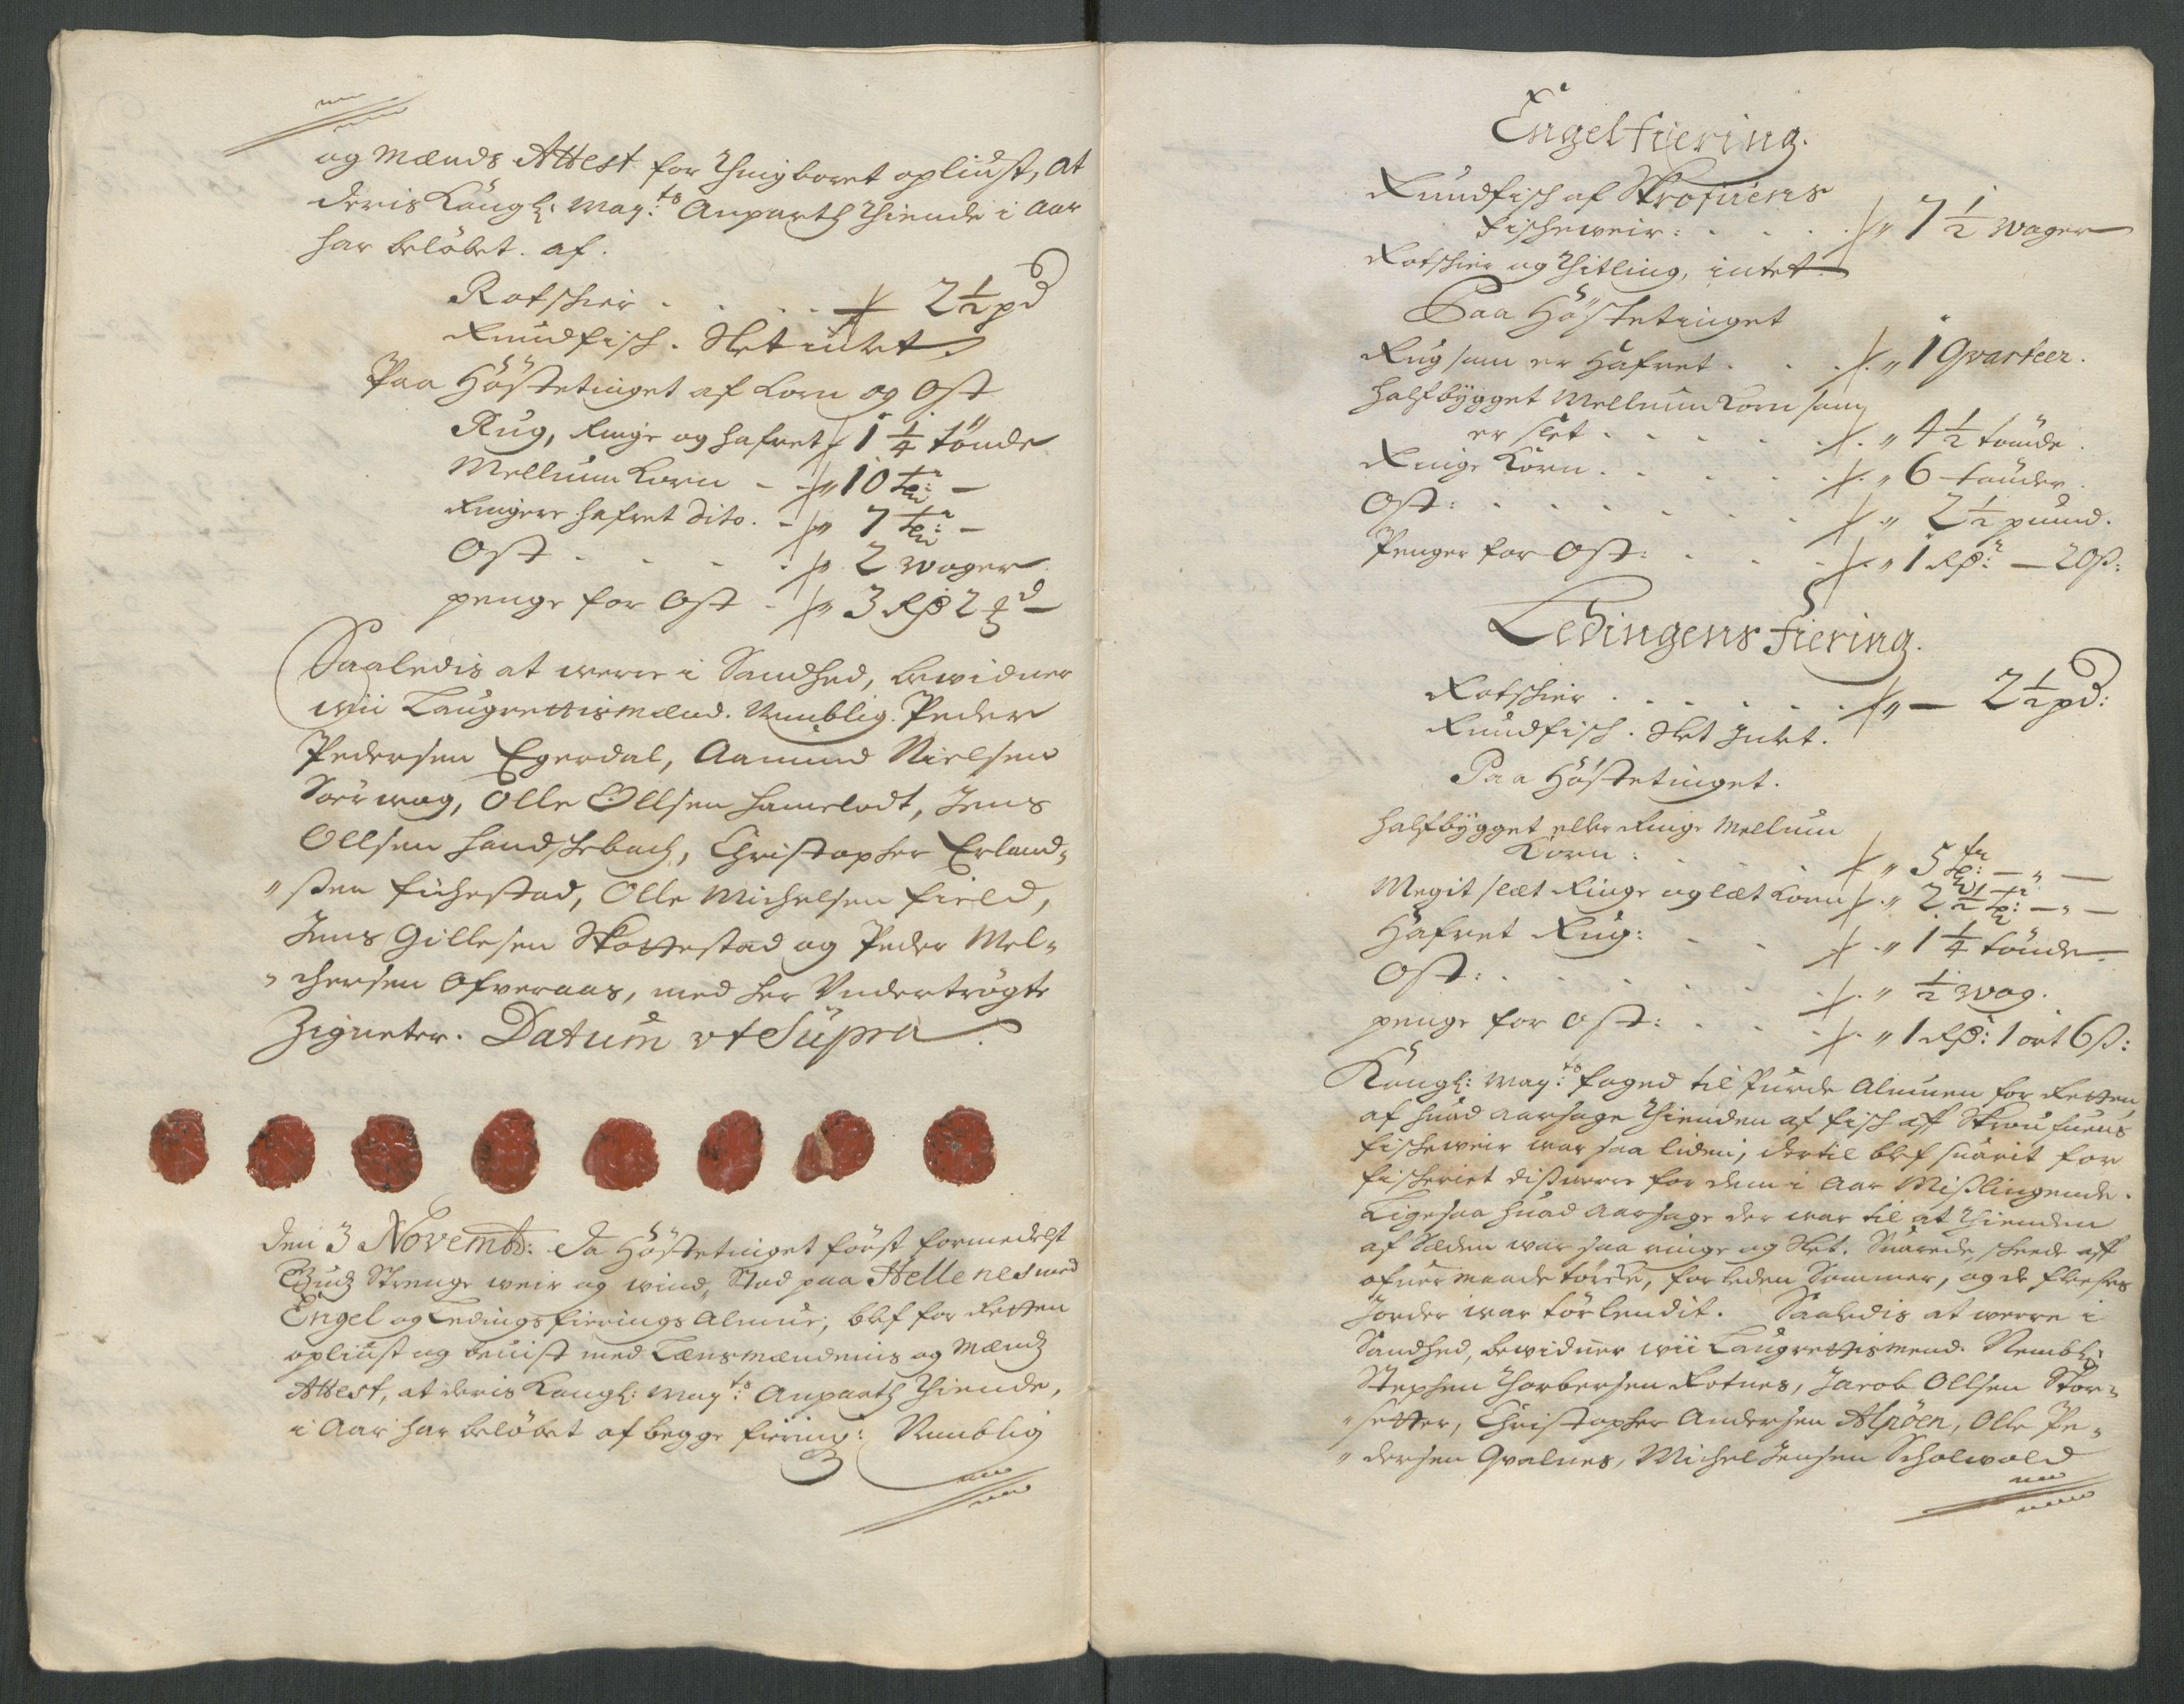 og Mænds Attest for Thingboret opliust, at
deris Kongl: May:ts Anparth Thiende i Aar
har beløbet. af.
Rotskier . . . . 2½ pd
Rundfisch. Slet intet
Paa Høstetinget af Korn og Ost
Rug, Ringe og hafret 1¼ tønde
Mellum Korn - - 10 tr: -
Ringere hafret dito. - 7 tr: -
Ost . . . . 2 Woger
penge for Ost - 3 Rd 2
Saaledis at werre i Sandhed, bewidner
wii Laugrettismænd. Nemblig. Peder
Pedersen Egerdal, Aamund Nielsen
Sørwaag, Olle Ollsen Hamelodt, Jens
Ollsen Handskebach, Christopher Erland-
"sen fichestad, Olle Michelsen field,
Jens Gillesen Skottestad og Peder Mel-
"chersen Ofveraas, med her Undertrøgte
Zigneter. Datum ut Supra.
den 3 Novemb: da Høstetinget først formedelst
Gudz Strenge weir og wind, Stod paa Hellenes med
Engel og Ledings fierings Almue, blef for Retten
opliust og beuist med Lænsmændenis og Mændz
Attest, at deris Kongl: May:ts Anparth Thiende,
i Aar har beløbet af begge fiering: Nemblig
Engelfiering.
Rundfisch af Skrofuens
fischeweir: . . . . " 7½ Woger
Rotskier og Titling, intet
Paa Høstetinget
Rug som er Hafret . . . " 1 Qvarteer.
Halfbygget Mellum Korn som
er slet . . . . . " 4½ tønde.
Ringe Korn . . . . . " 6 tønder.
Ost: . . . . . . " 2½ pund.
Penger for Ost: . . . " 1 Rd: - 20 ß:
Ledingens fiering.
Rotskier . . . . . " - 2½ pd:
Rundfisch. Slet Intet.
Paa Høstetinget.
Halfbygget eller Ringe Mellum
Korn: . . . . " 5 tr: - " -
Megit slæt Ringe og læt Korn " 2½ tr: - " -
Hafret Rug: . . . " 1¼ tønde
Ost: . . . . . . " ½ Wog.
penge for Ost: . . . " 1 Rd: 1 ort 6 ß:
Kongl: May:ts foged tilspurde Almuen for Retten,
af huad Aarsage Thienden af fisch aff Skroufuens
fischeweir war saa liden, dertil blef suarit for
fischeriet dißwerre for dem i Aar Mißlingende.
Ligesaa huad Aarsage der war til at Thienden
af Sæden war saa ringe og Slet. Suarede, skeede aff
ofuermaade tørcke, forleden Sommer, og de fleste
Jorder war tørlendit. Saaledis at werre i
Sandhed, bewidner wii Laugrettismend. Nembl:
Stephen Thorbersen Rotnes, Jacob Ollsen Stor-
"setter, Christopher Andersen Alpøen, Olle Pe-
"dersen Qvalnes, Michel Jensen Scholwold